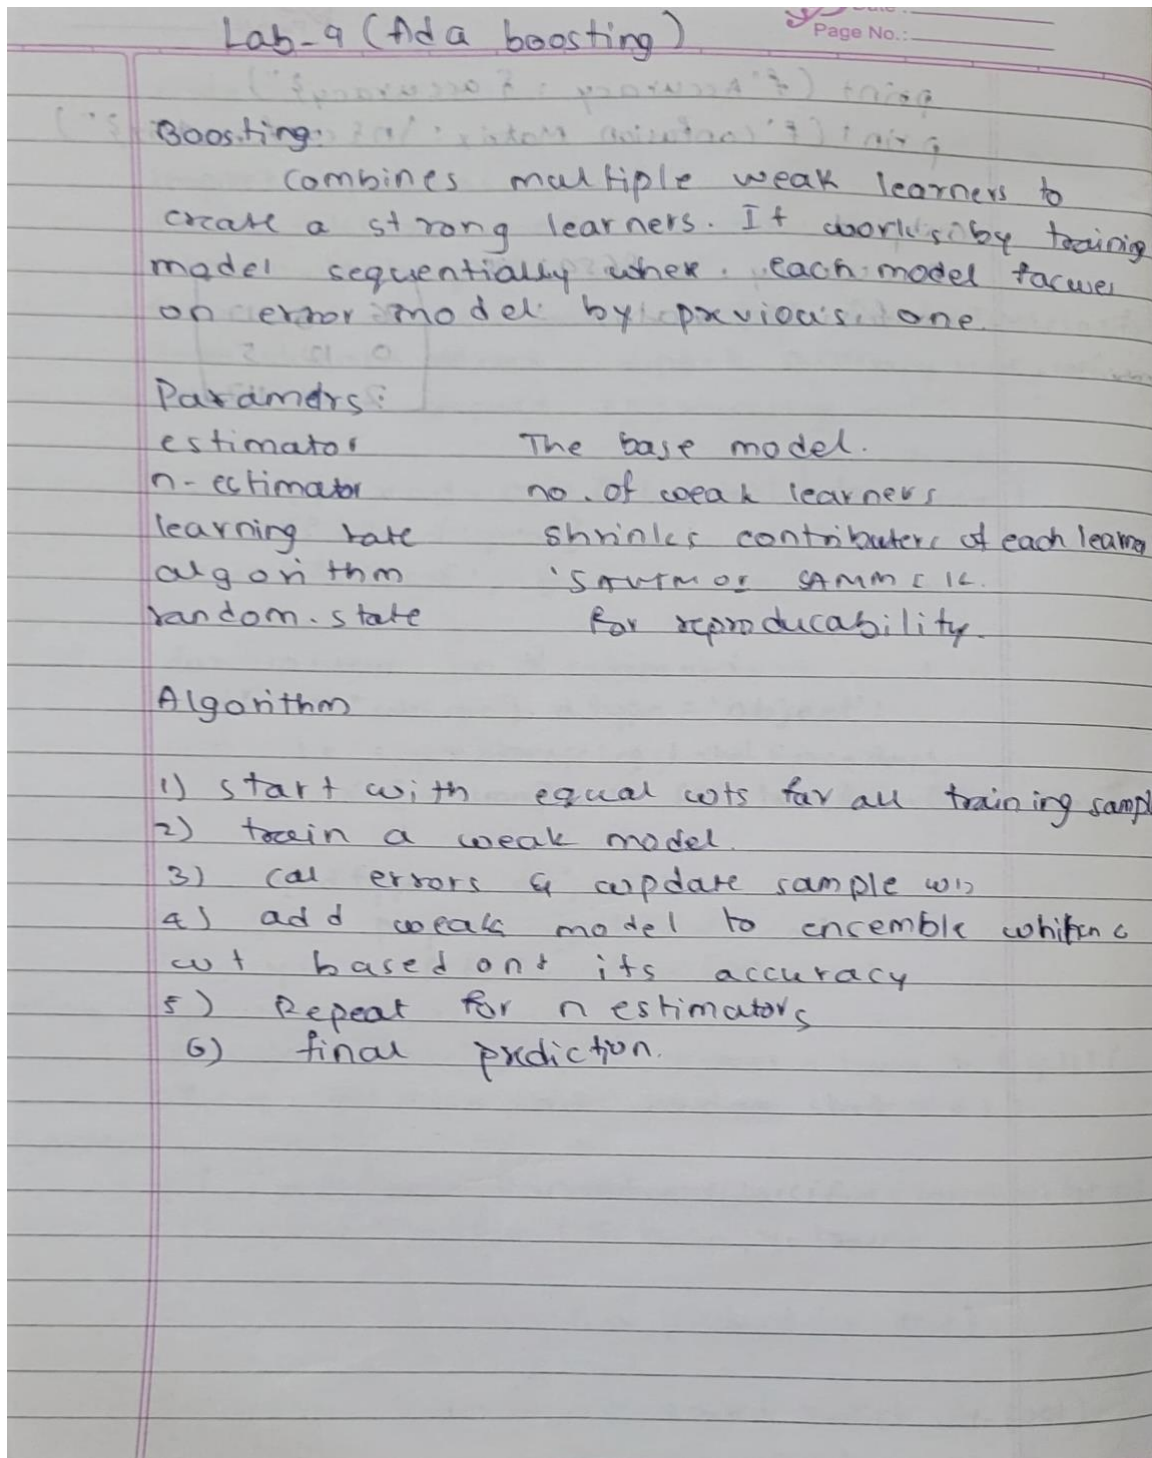 Lab-9 (Ada boosting)
Page No.:
Boosting:
combines multiple weak learners to
create a strong learners. It works by training
model sequentially where each model focuses
on error model by previous one.
Paramers:
estimator The base model.
n-estimator no. of weak learners
learning rate shrinks of each learner
algorithm
random.state for reproducability.
Algorithm
1) start with equal wts for all training sampl
2) train a weak model.
3) cal errors & update sample
4) add weak model to ensemble
wt based on its accuracy
5) Repeat for n estimators
6) final prediction.